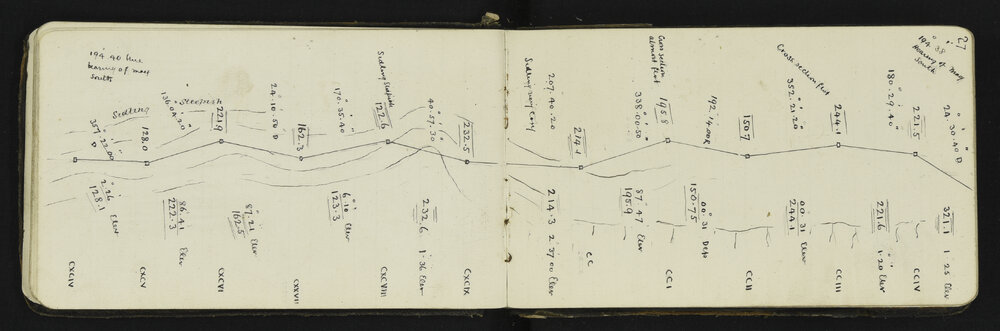 27
194° 40 line
bearing of mag
South
Sidling
136.04.20
Steepish
24.10.50 D
170.35.40
Sidling Steepish
40.57.30
128.0
221.9
162.3
122.6
232.5
2.26 Elev
128.1
86.41 Elev
222.3
87.21 Elev
162.5
6.10 Elev
123.3
232.6
1.36 Elev
CXCIV
CXCV
CXCVI
CXXVII
CXCVIII
CXCIX
Sidling
207.40.20
Cross section
almost flat
338.00.50
192.14.00 R
Cross section flat
352.21.20
180.29.40
194° 38
bearing of mag
South
24.30.40 D
214.1
195.8
150.7
244.1
221.5
214.3
2.37.00 Elev
87.47 Elev
195.9
00.31 Dep
150.75
00.31 Elev
244.1
221.6
1.20 Elev
321.1
1.25 Elev
CC
CCI
CCII
CCIII
CCIV